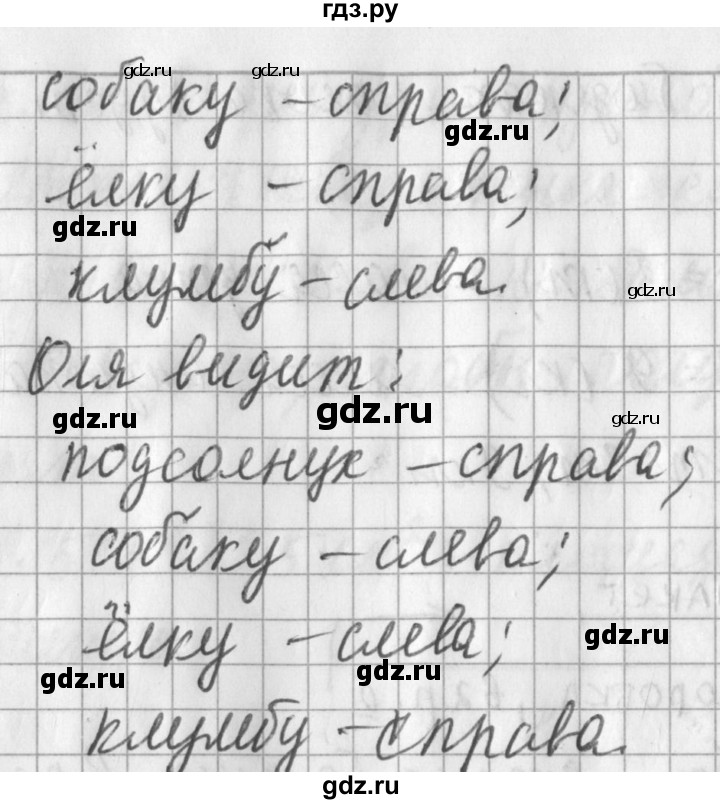 гдз.ру
gdz.ru gdz.ru
собаку – справа;
gdz.ru
ёлку – справа;
gdz.ru
клумбу – слева.
gdz.ru
Оля видит:
gdz.ru gdz.ru gdz.ru
подсолнух – справа;
собаку – слева;
ёлку – слева;
gdz.ru
gdz.ru gdz.ru
клумбу – справа.
gdz.ru